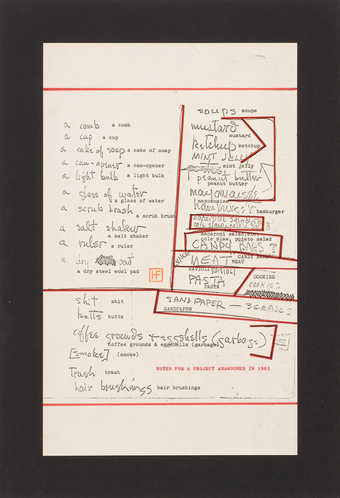 a comb a comb
a cap a cap
a cake of soap a cake of soap
a can-opener a can-opener
a light bulb a light bulb
a glass of water
a glass of water
a scrub brush
a scrub brush
a salt shaker
a salt shaker
a ruler a ruler
a dry pad
a dry steel wool pad
HF
soups soups
mustard
mustard
ketchup
ketchup
MINT JELLY
mint jelly
peanut butter
peanut butter
mayonnaise
mayonnaise
hamburger
hamburger
CANDY BARS
CANDY BARS
MEAT MEAT
PASTA
PASTA
COOKIES
COOKIES
SANDPAPER — 3 GRADES
SANDPAPER
shit shit
butts butts
coffee grounds & eggshells (garbage)
coffee grounds & eggshells (garbage)
[smokes] (smoke)
trash trash
hair brushings hair brushings
NOTES FOR A PROJECT ABANDONED IN 1961